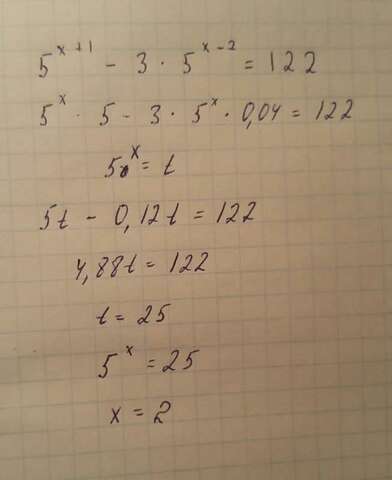 5^{x+1} - 3 · 5^{x-2} = 122
5^x · 5 - 3 · 5^x · 0,04 = 122
5^x = t
5t - 0,12t = 122
4,88t = 122
t = 25
5^x = 25
x = 2